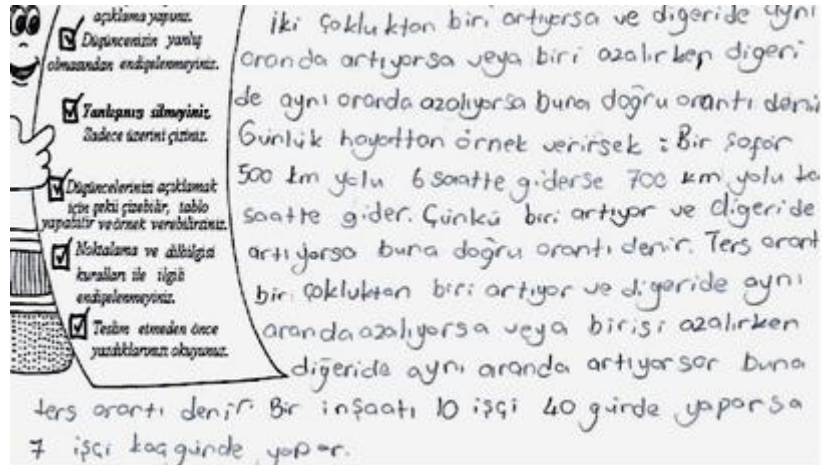 açıklama yapınız.
Düşüncenizin yanlış
olmasından endişelenmeyiniz.
Yanlışınızı silmeyiniz.
Sadece üzerini çiziniz.
Düşüncelerinizi açıklamak
için şekil çizebilir, tablo
yapabilir ve örnek verebilirsiniz.
Noktalama ve dilbilgisi
kuralları ile ilgili
endişelenmeyiniz.
Teslim etmeden önce
yazdıklarınızı okuyunuz.
İki çokluktan biri artıyorsa ve digeride aynı
oranda artıyorsa veya biri azalırken digeri
de aynı oranda azalıyorsa buna doğru orantı
Günlük hayattan örnek verirsek : Bir şoför
500 km yolu 6 saatte giderse 700 km yolu
saatte gider. Çünkü biri artıyor ve digeride
artıyorsa buna doğru orantı denir. Ters orant
bir çokluktan biri artıyor ve digeride aynı
oranda azalıyorsa veya birisi azalırken
diğeride aynı oranda artıyorsar buna
ters orantı denir. Bir inşaatı 10 işçi 40 günde yaparsa
7 işçi kaç günde yapar.